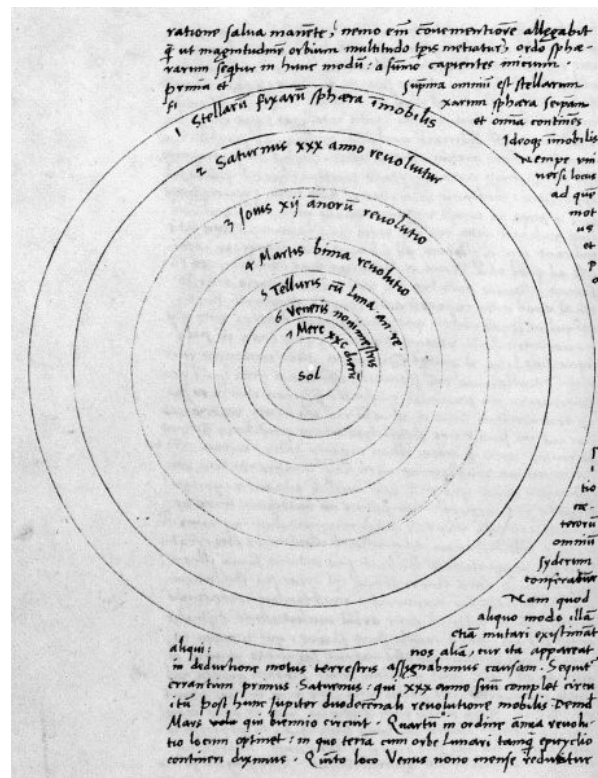 ratione salua manēte, nemo em̄ cōuenientiorē allegabit
q̄ ut magnitudinē orbium multitudo tp̄is metiatur, ordo sphæ-
rarum seqtur in hunc modū: a sūmo capientes inicium.
prima et suprema omniū est stellarum
fi xarum sphæra seipsam
et omnia continēs
Ideoq; īmobilis
Nempe uni
uersi locus
ad quē
mot
us
et
p
o
1 Stellarū fixarū sphæra īmobilis
2 Saturnus xxx anno reuoluitur
3 Iouis xij annorū reuolutio
4 Martis bima reuolutio
5 Telluris cū Luna an. re.
6 Veneris nonimestris
7 Merc xxc dierū
Sol
s
i
tio
cæ-
terorū
omniū
syderum
conferatur
Nam quod
aliquo modo illā
etiā mutari existimāt
aliqui: nos aliā, cur ita appareat
in deductione motus terrestris assignabimus causam. Sequit'
errantium primus Saturnus: qui xxx anno suū complet circu
itū post hunc Jupiter duodecennali reuolutione mobilis Deinde
Mars uolo qui biennio circuit. Quartū in ordine annua reuolu-
tio locum optinet: in quo terrā cum orbe Lunari tamq̄ epicyclio
contineri diximus. Quinto loco Venus nono mense reducitur